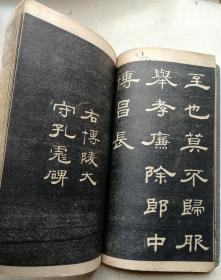 至也莫不歸服
舉孝廉除郎中
博昌長
右博陵太
守孔彪碑